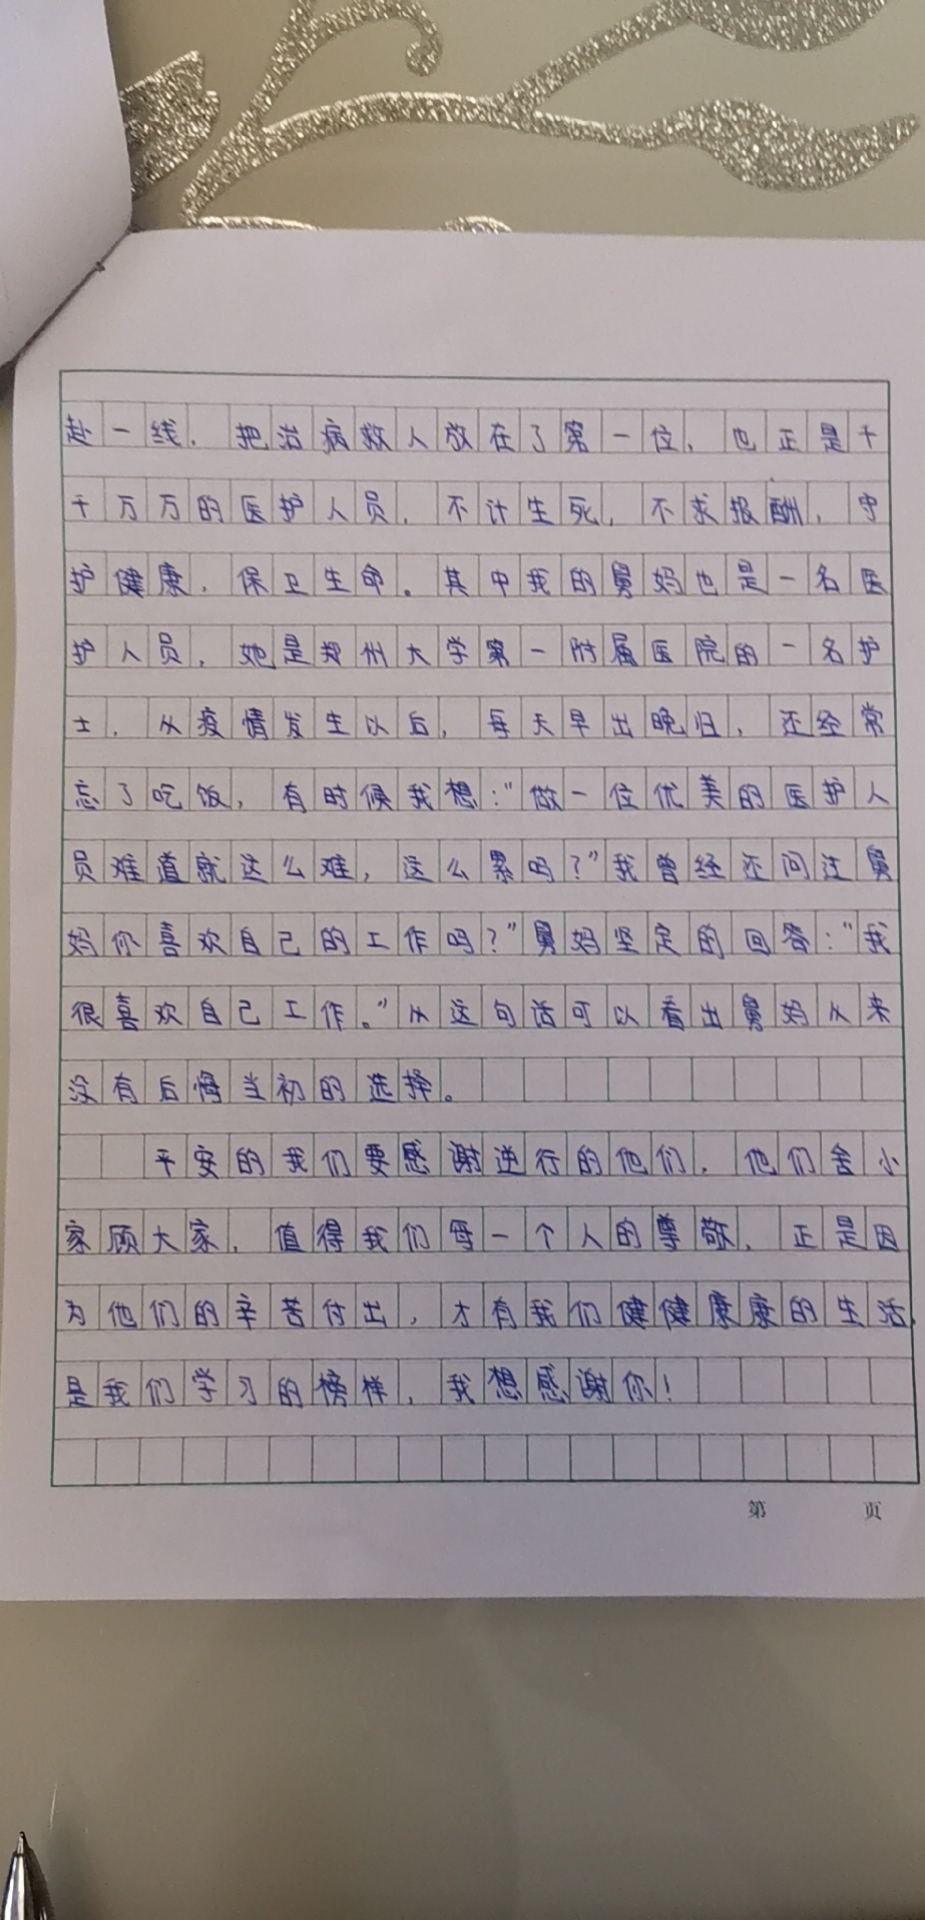 赴一线，把治病救人放在了第一位，也正是千
千万万的医护人员，不计生死，不求报酬，守
护健康，保卫生命。其中我的舅妈也是一名医
护人员，她是郑州大学第一附属医院的一名护
士，从疫情发生以后，每天早出晚归，还经常
忘了吃饭，有时候我想：“做一位优美的医护人
员难道就这么难，这么累吗？”我曾经还问过舅
妈你喜欢自己的工作吗？”舅妈坚定的回答：“我
很喜欢自己工作。”从这句话可以看出舅妈从来
没有后悔当初的选择。
平安的我们要感谢逆行的他们，他们舍小
家顾大家，值得我们每一个人的尊敬，正是因
为他们的辛苦付出，才有我们健健康康的生活，
是我们学习的榜样，我想感谢你！
第 页